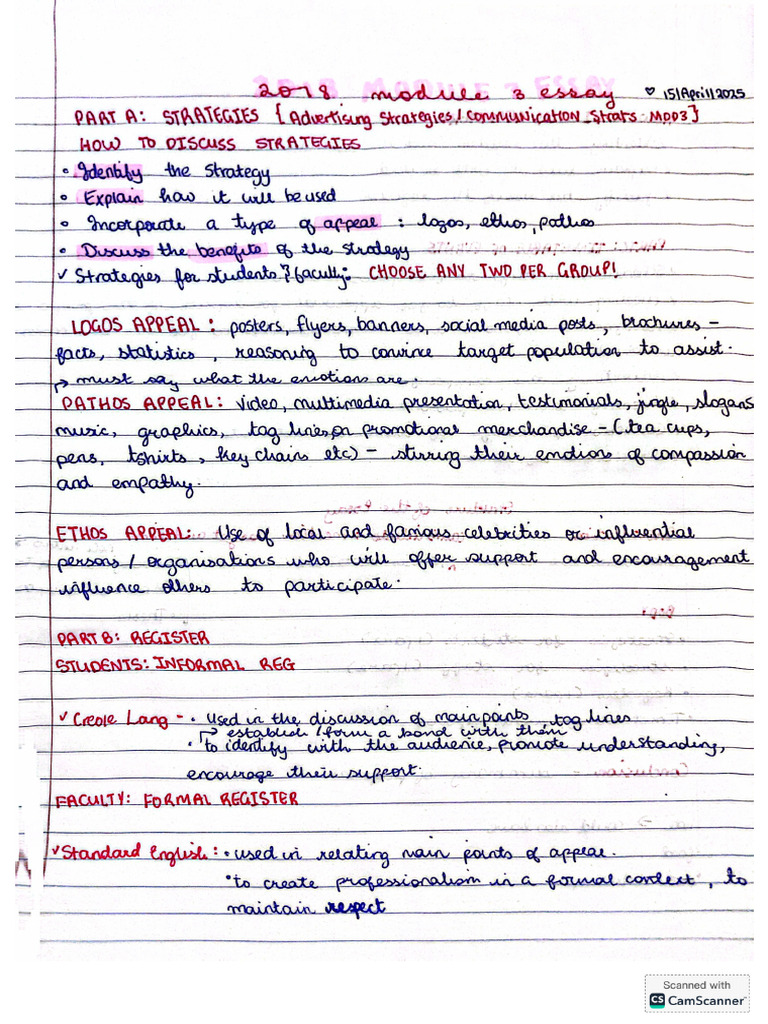 2018 module 3 essay ♡ 15/April/2025
PART A: STRATEGIES {Advertising Strategies/Communication Strats - MOD3}
HOW TO DISCUSS STRATEGIES
• Identify the strategy
• Explain how it will be used
• Incorporate a type of appeal : logos, ethos, pathos
• Discuss the benefits of the strategy
✓ Strategies for students & faculty: CHOOSE ANY TWO PER GROUP!
LOGOS APPEAL : posters, flyers, banners, social media posts, brochures -
facts, statistics, reasoning to convince target population to assist.
↱ must say what the emotions are.
PATHOS APPEAL: video, multimedia presentation, testimonials, jingle, slogans
music, graphics, tag lines, or promotional merchandise - (tea cups,
pens, tshirts, key chains etc) - stirring their emotions of compassion
and empathy.
ETHOS APPEAL: Use of local and famous celebrities or influential
persons / organisations who will offer support and encouragement
influence others to participate.
PART B: REGISTER
STUDENTS: INFORMAL REG
✓ Creole Lang - • Used in the discussion of main points, tag lines
↱ establish / form a bond with them
• to identify with the audience, promote understanding,
encourage their support.
FACULTY: FORMAL REGISTER
✓ Standard English: • used in relating main points of appeal.
• to create professionalism in a formal context, to
maintain respect
Scanned with
CS CamScanner